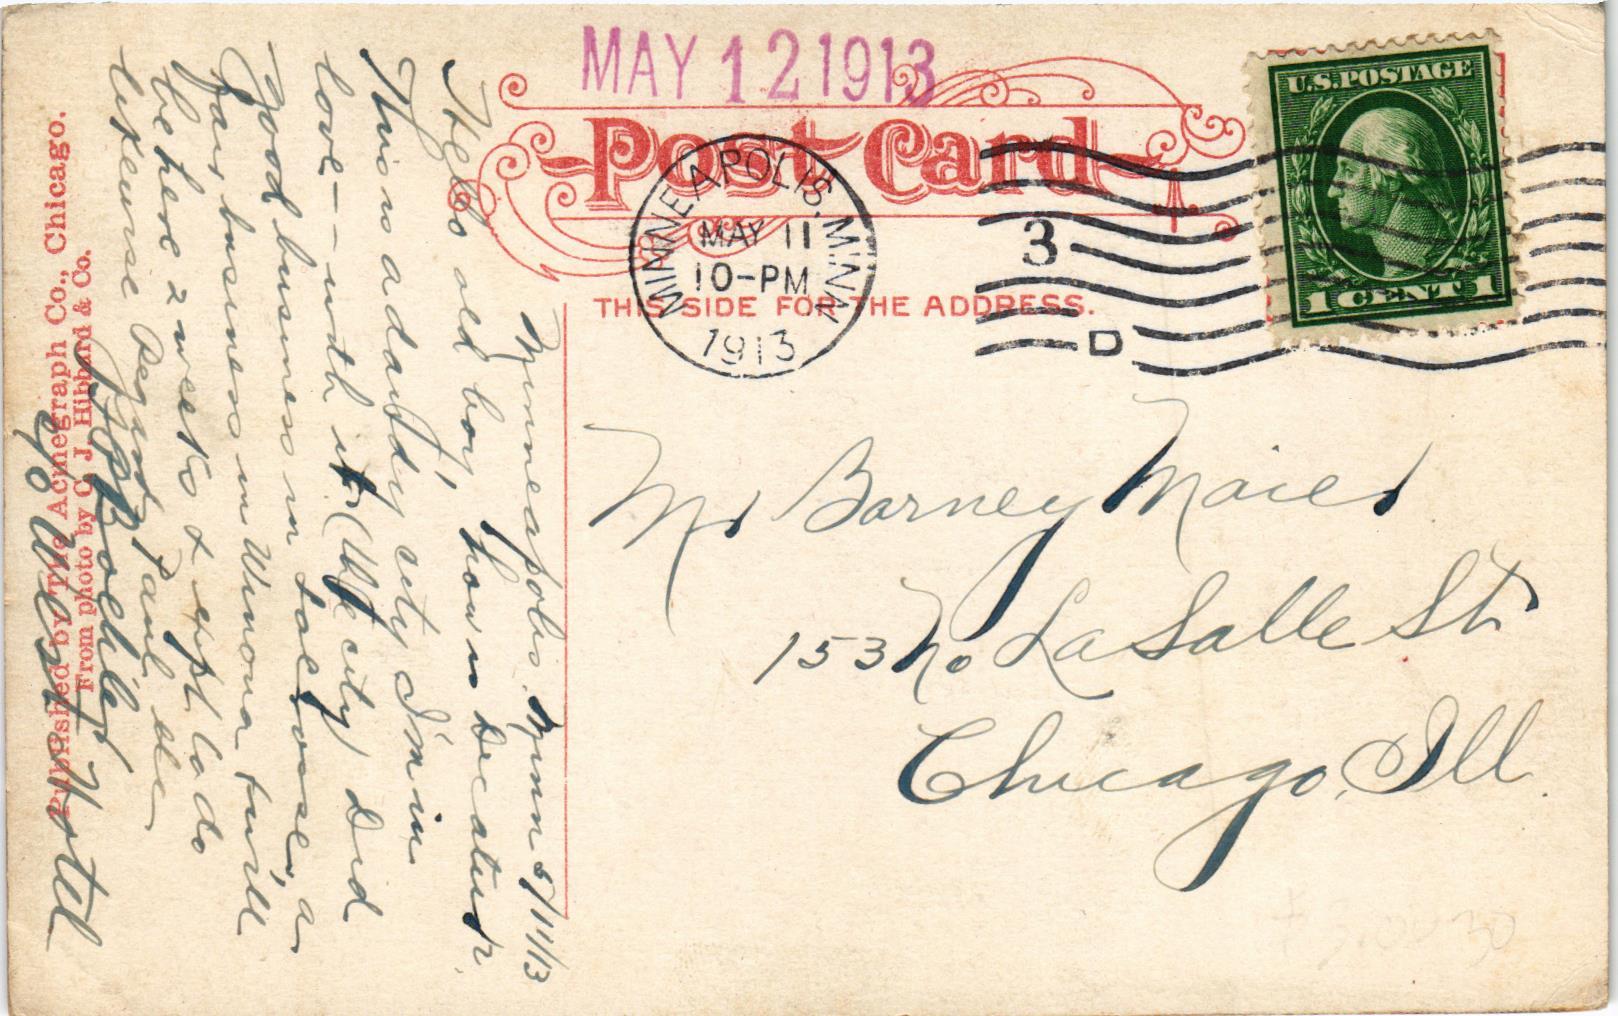 MAY 12 1913
Post Card
MINNEAPOLIS, MINN.
MAY 11
10-PM
1913
3
D
U.S. POSTAGE
1 CENT 1
THIS SIDE FOR THE ADDRESS.
Mr Barney Maier
153 No LaSalle St
Chicago, Ill.
Minneapolis, Minn 5/11/13
Hello old boy, how is Decatur,
This is a dandy city I'm in
love -- with it, (the city) Did
good business in LaCrosse, a
fair business in Winona & will
be here 2 weeks & expt to do
likewise Regards Paul
Boedi
c/o West Hotel
Published by The Acmegraph Co., Chicago.
From photo by C. J. Hibbard & Co.